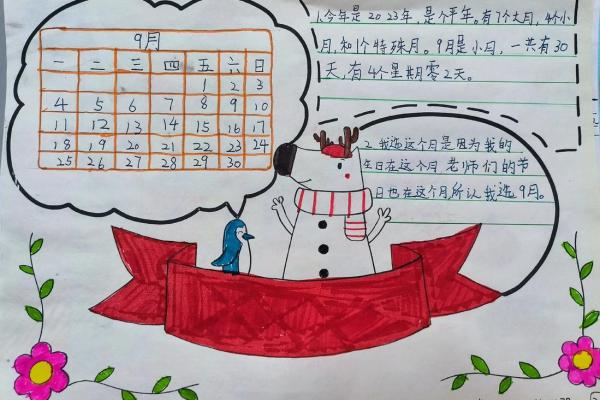 9月
一 二 三 四 五 六 日
1 2 3
4 5 6 7 8 9 10
11 12 13 14 15 16 17
18 19 20 21 22 23 24
25 26 27 28 29 30
1.今年是2023年,是个平年。有7个大月,4个小
月,和1个特殊月。9月是小月,一共有30
天,有4个星期零2天。
2.我选这个月是因为我的
生日在这个月老师们的节
日也在这个月所以我选9月。